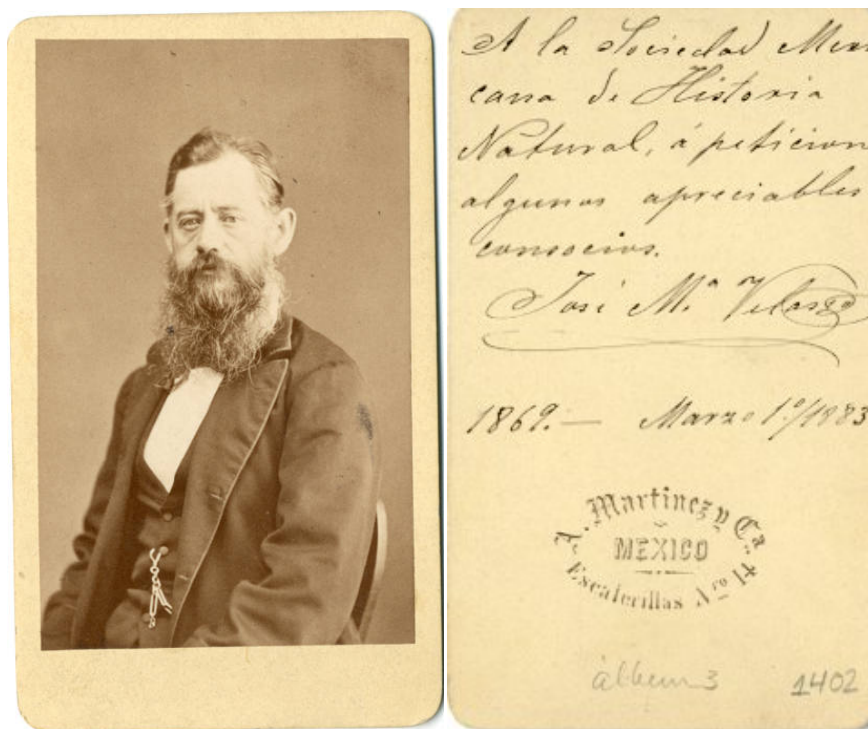 A la Sociedad Mexi
cana de Historia
Natural, á peticion
algunos apreciables
consocios.
José M.ª Velasco
1869.— Marzo 1º/1883
A. Martinez y Ca.
MEXICO
Escalerillas Nro 14
álbum 3
1402